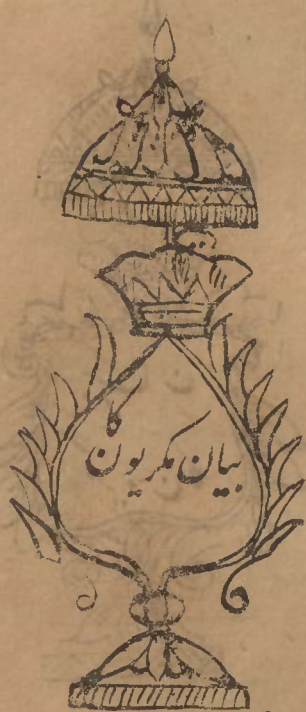 بیان مکریون کا